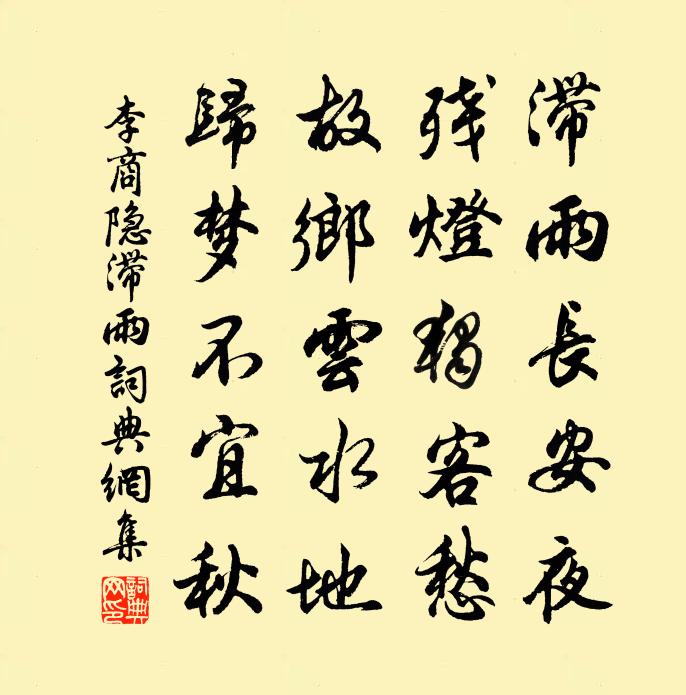 滞雨長安夜
残燈獨客愁
故鄉雲水地
歸梦不宜秋
李商隐滞雨詞典網集
詞典
网印